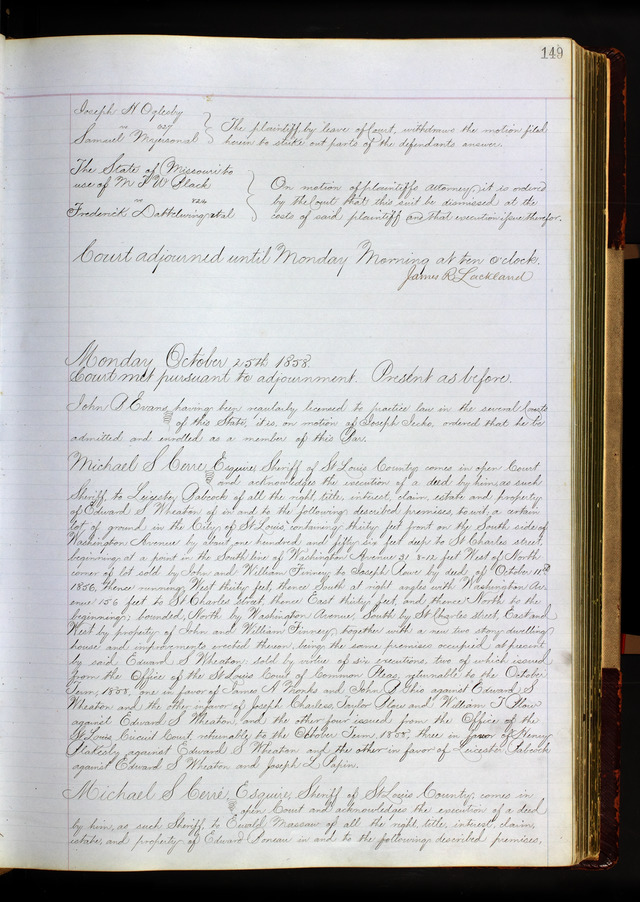 149
Joseph H Oglesby
vs 827
Samuel Myersonal
The plaintiff by leave of Court, withdraws the motion filed
herein to strike out parts of the defendants answer.
The State of Missouri to
use of M W Flack
vs 824
Frederick et al
On motion of plaintiffs attorney, it is ordered
by the Court that this suit be dismissed at the
costs of said plaintiff and that execution issue therefor.
Court adjourned until Monday Morning at ten o'clock.
James R Lackland
Monday October 25th 1858.
Court met pursuant to adjournment. Present as before.
John P Evans, having been regularly licensed to practice law in the several Courts
of this State, it is, on motion of Joseph ordered that he be
admitted and enrolled as a member of this Bar.
Michael S Cerré, Esquire, Sheriff of St Louis County, comes in open Court
and acknowledges the execution of a deed by him, as such
Sheriff, to Leicester Babcock of all the right, title, interest, claim, estate and property
of Edward S Wheaton of in and to the following described premises, to wit, a certain
lot of ground in the City of St Louis, containing thirty feet front on the South side of
Washington Avenue by about one hundred and fifty six feet deep to St Charles street,
beginning at a point in the South line of Washington Avenue 31 8-12 feet West of North
corner of lot sold by John and William Finney to Joseph Rowe by deed of October 11th
1856, thence running West thirty feet, thence South at right angles with Washington Av-
enue 156 feet to St Charles street, thence East thirty feet, and thence North to the
beginning; bounded, North by Washington Avenue, South by St Charles street, East and
West by property of John and William Finney, together with a new two story dwelling
house and improvements erected thereon, being the same premises occupied at present
by said Edward S Wheaton: sold by virtue of six executions, two of which issued
from the Office of the St Louis Court of Common Pleas, returnable to the October
Term, 1858, one in favor of James A Monks and John P against Edward S
Wheaton and the other in favor of Joseph Charless, Taylor Blow and William T Blow
against Edward S Wheaton, and the other four issued from the Office of the
St Louis Circuit Court, returnable to the October Term, 1858, three in favor of Henry
Blakesly against Edward S Wheaton and the other in favor of Leicester Babcock
against Edward S Wheaton and Joseph L Papin.
Michael S Cerré, Esquire, Sheriff of St Louis County, comes in
open Court and acknowledges the execution of a deed
by him, as such Sheriff, to Ewald Massaw of all the right, title, interest, claim,
estate, and property of Edward in and to the following described premises,